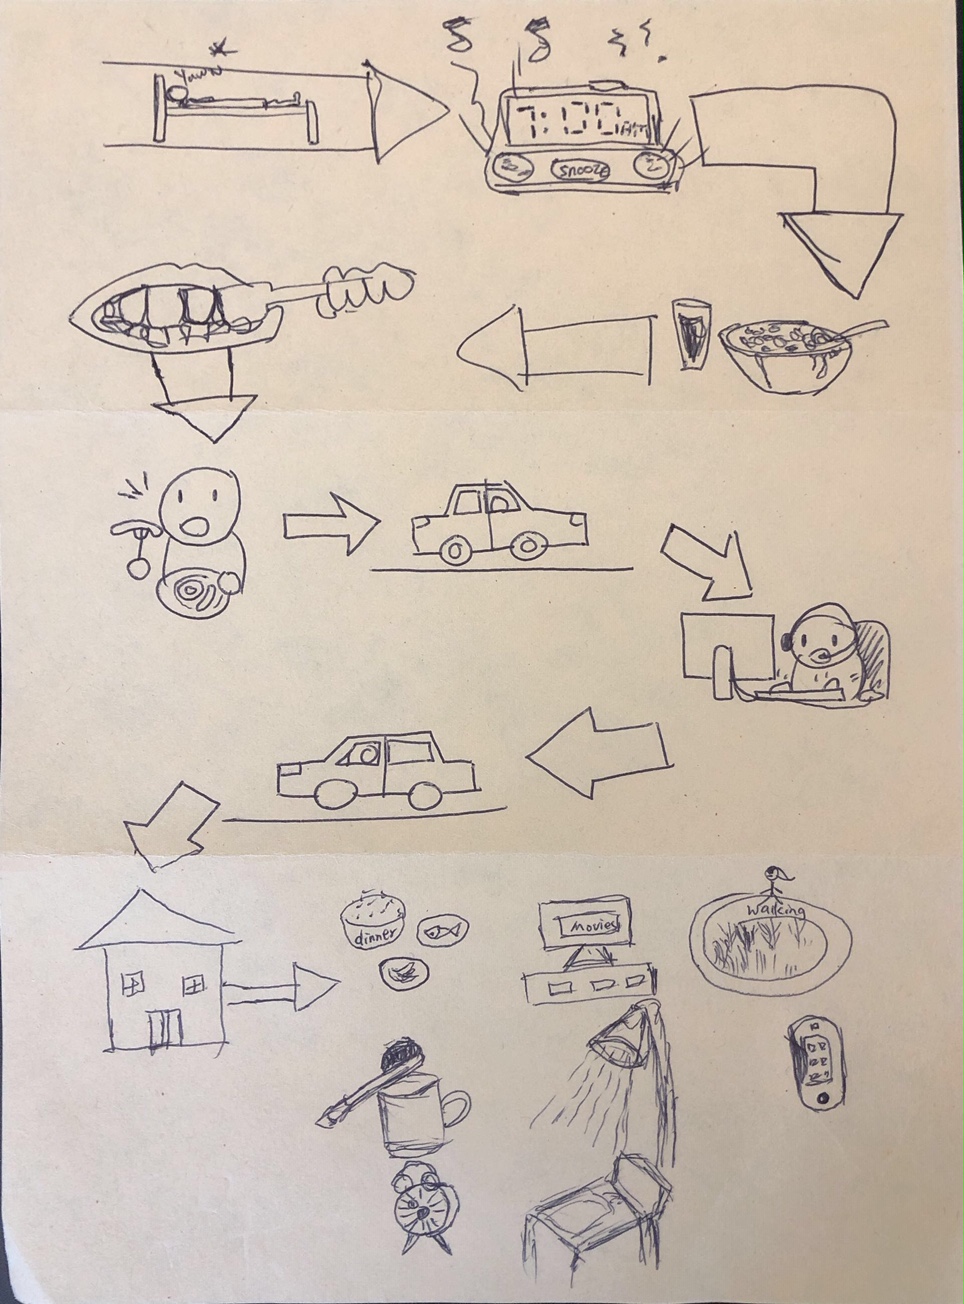 Yawn
7:00 AM
SNOOZE
dinner
Movies
walking